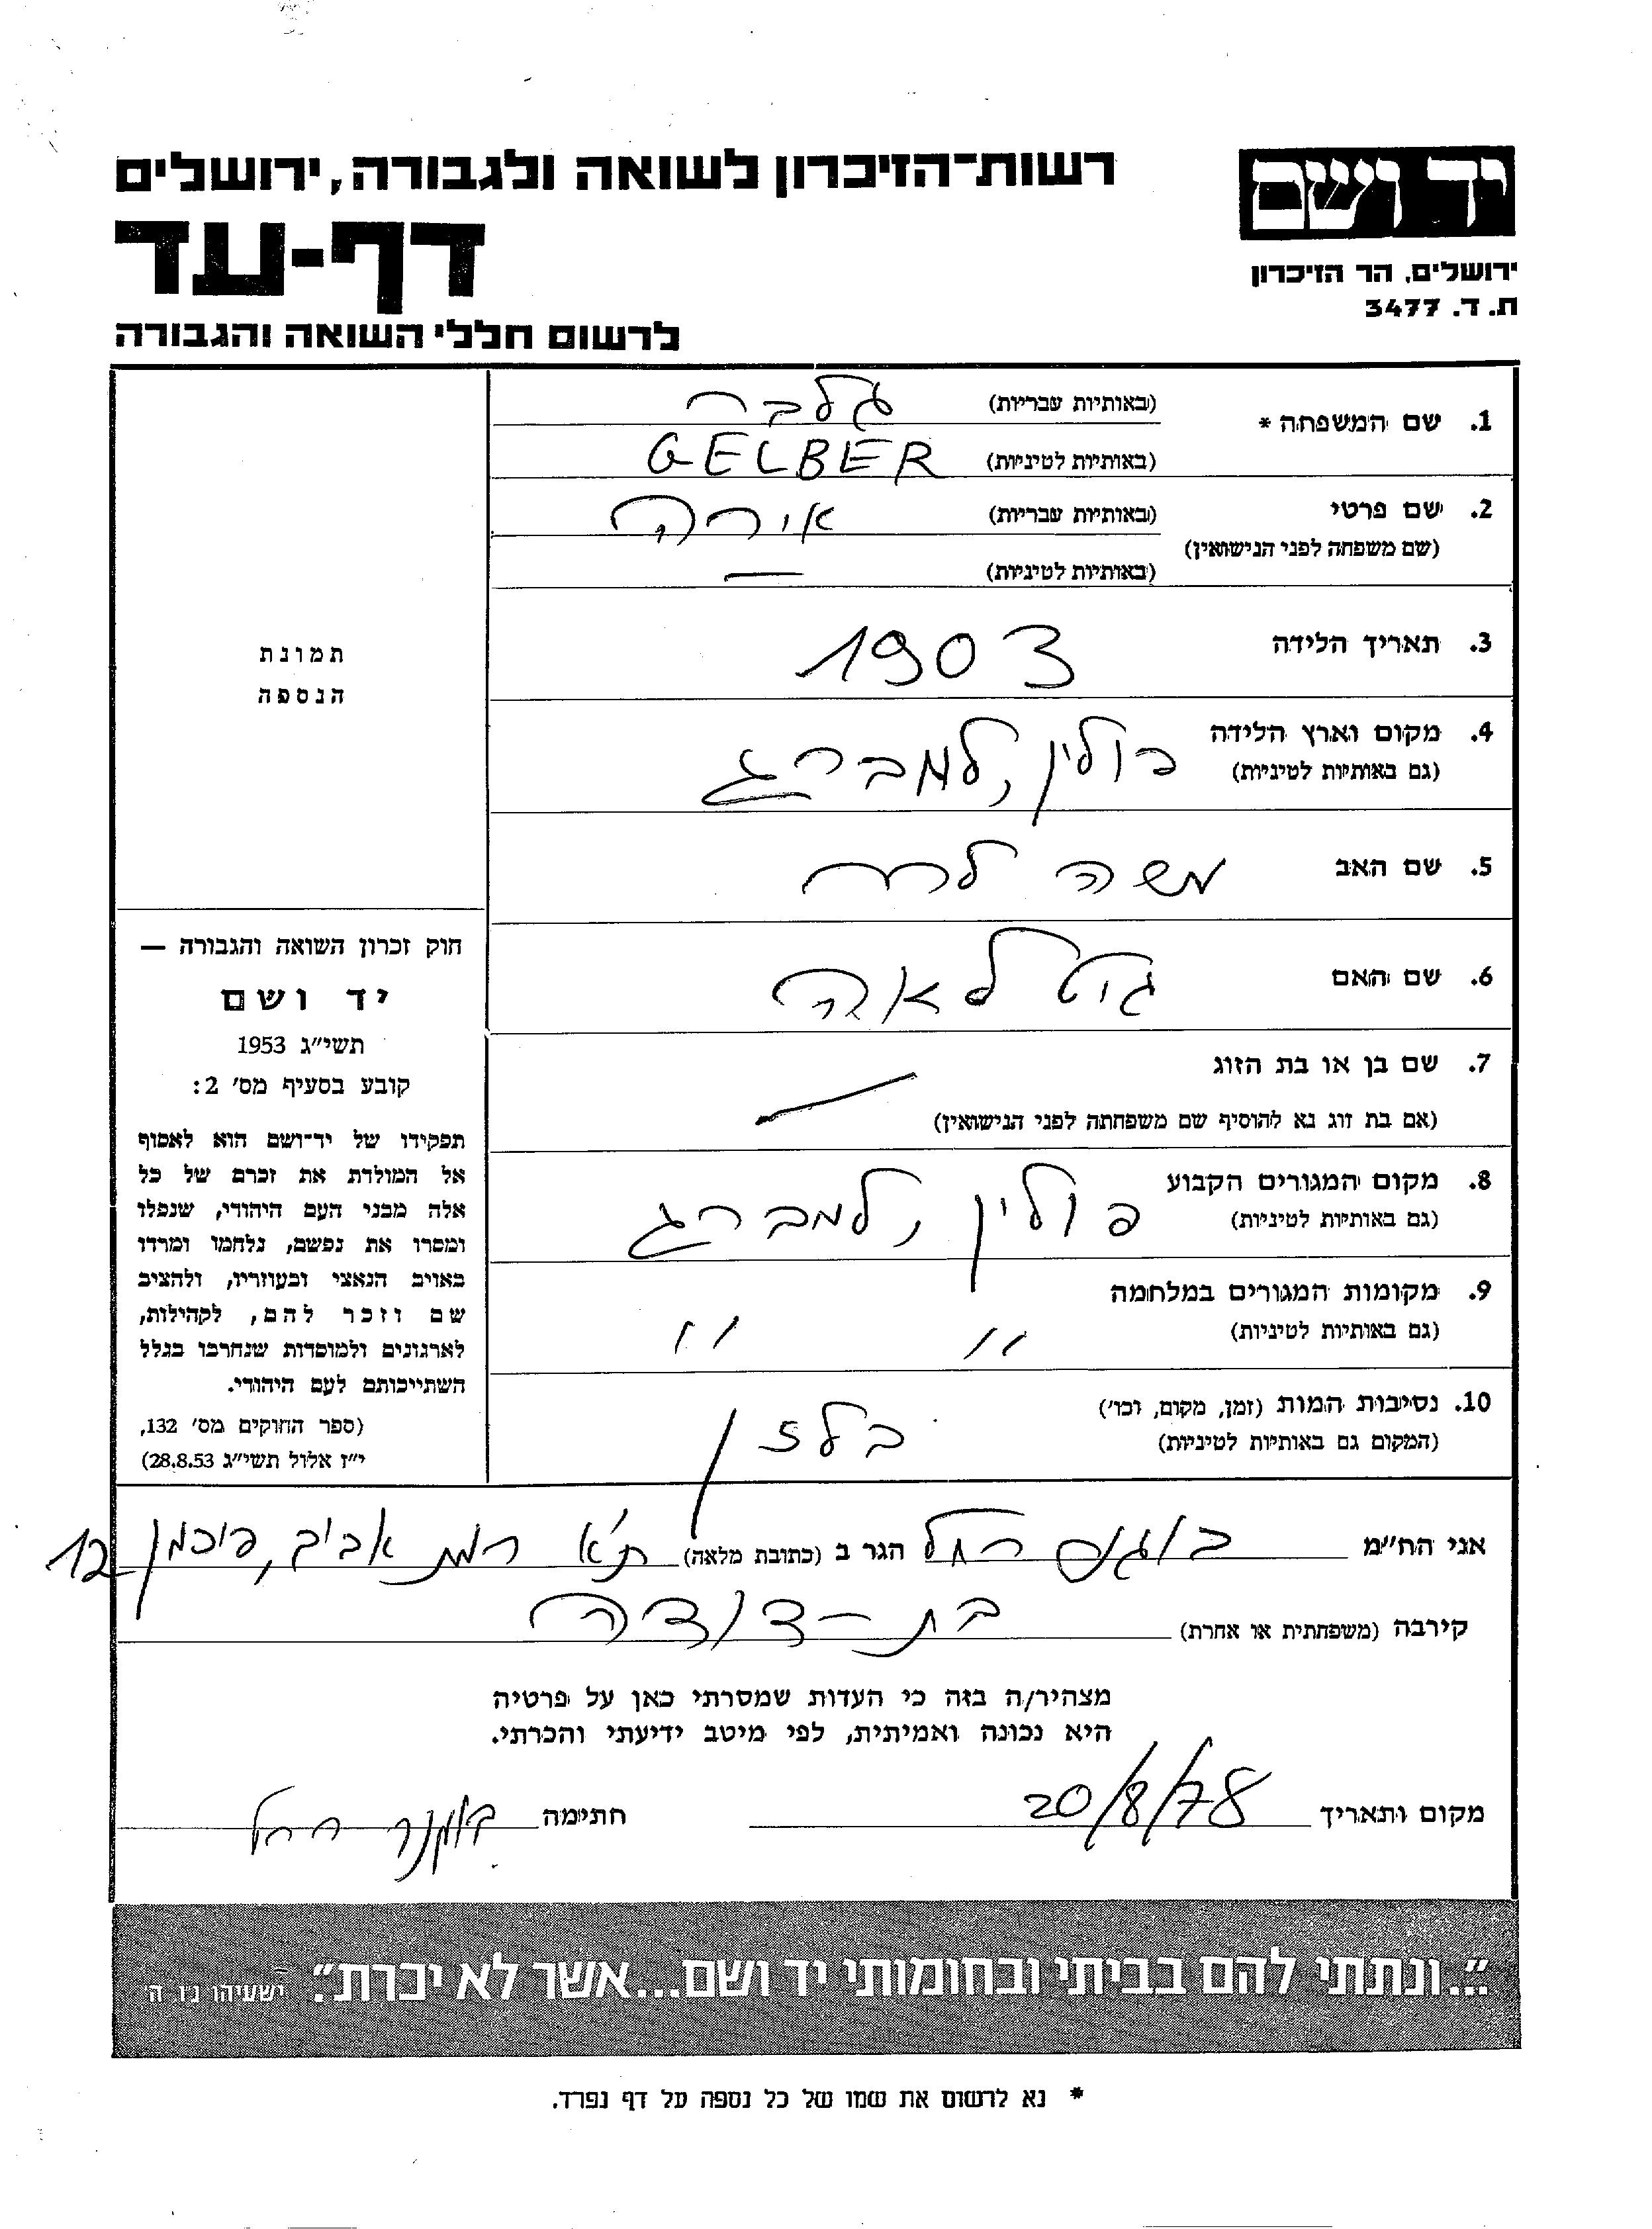 רשות-הזיכרון לשואה ולגבורה, ירושלים
דף-עד
לרשום חללי השואה והגבורה
יד ושם
ירושלים, הר הזיכרון
ת. ד. 3477
1. שם המשפחה * (באותיות עבריות) גלבר
(באותיות לטיניות) GELBER
2. שם פרטי (באותיות עבריות) אירה
(שם משפחה לפני הנישואין)
(באותיות לטיניות) —
3. תאריך הלידה 1903
4. מקום וארץ הלידה פולין, למברג
(גם באותיות לטיניות)
5. שם האב משה
6. שם האם גיט לאה
7. שם בן או בת הזוג
(אם בת זוג נא להוסיף שם משפחתה לפני הנישואין)
8. מקום המגורים הקבוע פולין, למברג
(גם באותיות לטיניות)
9. מקומות המגורים במלחמה
(גם באותיות לטיניות) " "
10. נסיבות המות (זמן, מקום, וכו') בלזן
(המקום גם באותיות לטיניות)
תמונת
הנספה
חוק זכרון השואה והגבורה —
יד ושם
תשי"ג 1953
קובע בסעיף מס' 2:
תפקידו של יד-ושם הוא לאסוף
אל המולדת את זכרם של כל
אלה מבני העם היהודי, שנפלו
ומסרו את נפשם, נלחמו ומרדו
באויב הנאצי ובעוזריו, ולהציב
שם וזכר להם, לקהילות,
לארגונים ולמוסדות שנחרבו בגלל
השתייכותם לעם היהודי.
(ספר החוקים מס' 132,
י"ז אלול תשי"ג 28.8.53)
אני הח"מ רחל הגר ב (כתובת מלאה) ת"א רמת אביב, פיכמן 12
קירבה (משפחתית או אחרת) בת-דודה
מצהיר/ה בזה כי העדות שמסרתי כאן על פרטיה
היא נכונה ואמיתית, לפי מיטב ידיעתי והכרתי.
מקום ותאריך 20/8/78 חתימה רחל
"...ונתתי להם בביתי ובחומותי יד ושם...אשר לא יכרת". ישעיהו נ"ו ה'
* נא לרשום את שמו של כל נספה על דף נפרד.